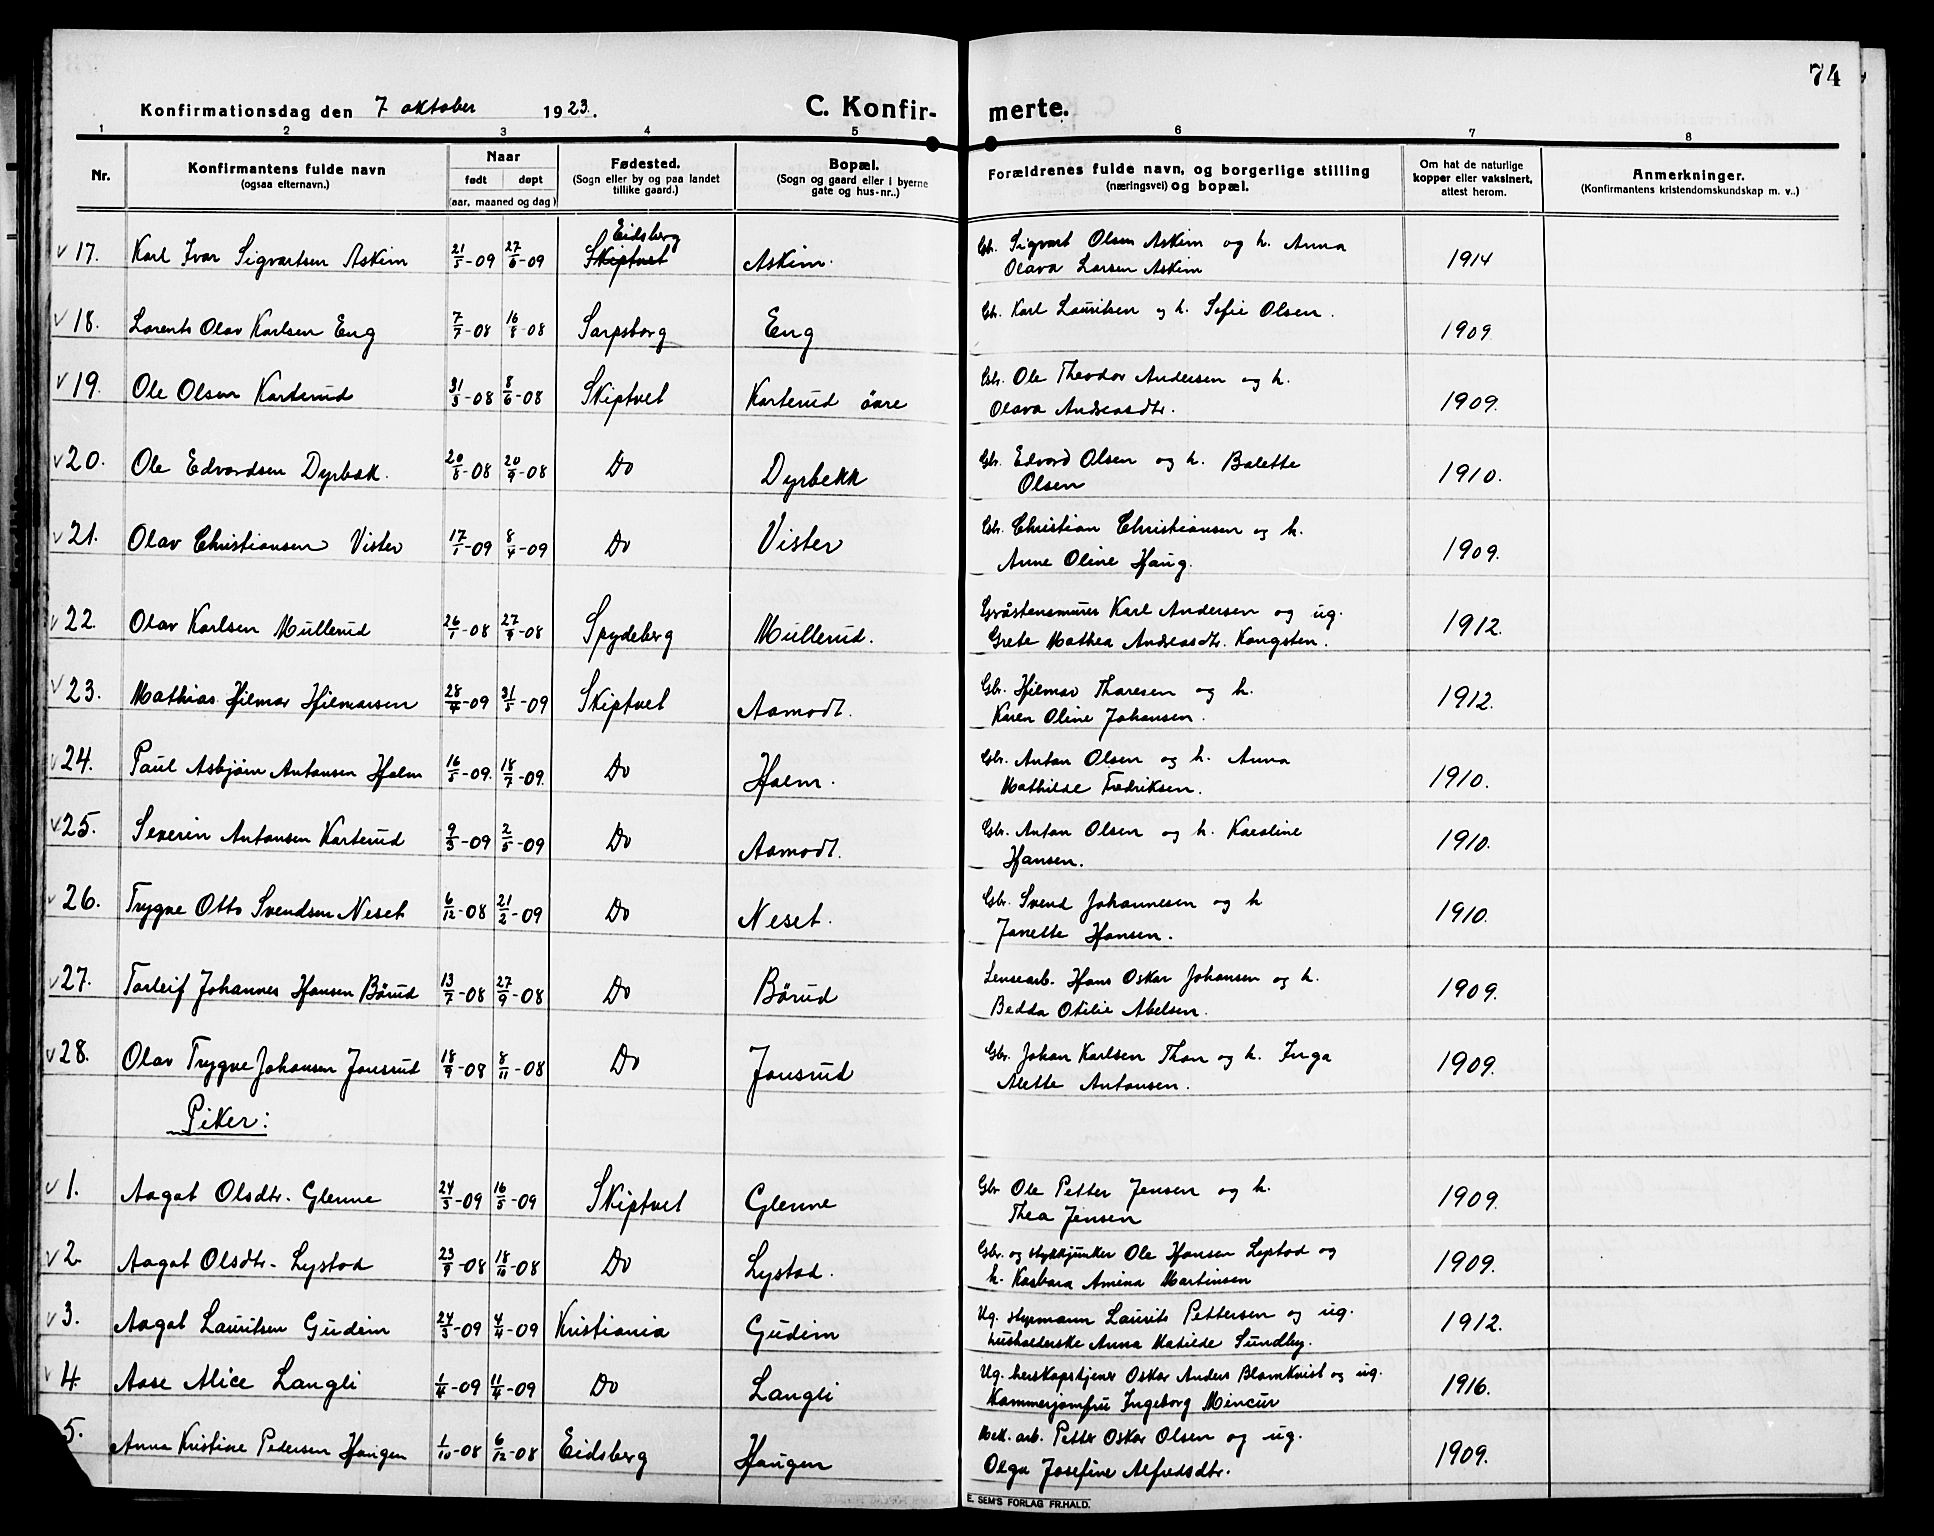 74
Konfirmationsdag den 7 oktober 1923.
C. Konfir-merte.
1 2 3 4 5 6 7 8
Nr.
Konfirmantens fulde navn
(ogsaa efternavn.)
Naar
født døpt
(aar, maaned og dag)
Fødested.
(Sogn eller by og paa landet
tillike gaard.)
Bopæl.
(Sogn og gaard eller i byerne
gate og hus-nr..)
Forældrenes fulde navn, og borgerlige stilling
(næringsvei) og bopæl.
Om hat de naturlige
kopper eller vaksinert,
attest herom.
Anmerkninger.
(Konfirmantens kristendomskundskap m. v..)
v 17. Karl Ivar Sigvartsen Askim 21/5-09 27/6-09 Skiptvet Eidsberg Askim. Gbr. Sigvart Olsen Askim og h. Anna 1914
Olava Larsen Askim
v 18. Lorents Olav Karlsen Eng 7/7-08 16/8-08 Sarpsborg Eng Gbr. Karl Lauritsen og h. Sofie Olsen. 1909
v 19. Ole Olsen Karterud 31/3-08 8/6-08 Skiptvet Karterud øvre Gbr. Ole Theodor Andersen og h. 1909.
Olava Andreasdtr.
v 20. Ole Edvardsen Dyrbæk. 20/8-08 20/9-08 Do Dyrbekk Gbr. Edvard Olsen og h. Balette 1910.
Olsen
v 21. Olav Christiansen Vister 17/1-09 8/4-09 Do Vister Gbr. Christian Christiansen og h. 1909.
Anne Oline Haug.
v 22. Olav Karlsen Mullerud 26/1-08 27/9-08 Spydeberg Mullerud. Gråstensmurer Karl Andersen og ug. 1912.
Grete Mathea Andreasdtr. Kongsten.
v 23. Mathias Hilmar Hilmarsen 28/4-09 31/5-09 Skiptvet Aamodt. Gbr. Hilmar Thoresen og h. 1912.
Karen Oline Johansen.
v 24. Paul Asbjørn Antonsen Holm 16/5-09. 18/7-09. Do Holm. Gbr. Anton Olsen og h. Anna 1910.
Mathilde Fredriksen.
v 25. Severin Antonsen Karterud 9/3-09 2/5-09 Do Aamodt. Gbr. Anton Olsen og h. Karoline 1910.
Hansen.
v 26. Trygve Otto Svendsen Neset 6/12-08 21/2-09 Do Neset. Gbr. Svend Johannesen og h 1910.
Janette Hansen.
v 27. Torleif Johannes Hansen Børud 13/7-08 27/9-08 Do Børud Lensearb. Hans Oskar Johansen og h. 1909.
Bedda Otilie Abelsen.
v 28. Olav Trygve Johansen Jonsrud 18/9-08 8/11-08 Do Jonsrud Gbr. Johan Karlsen Thon og h. Inga 1909.
Alette Antonsen.
Piker:
v 1. Aagot Olsdtr. Glenne 24/3-09 16/5-09 Skiptvet Glenne Gbr Ole Petter Jensen og h. 1909.
Thea Jensen
v 2. Aagot Olsdtr. Lystad 23/9-08 18/10-08 Do Lystad. Gbr. og stykkjunker Ole Hansen Lystad og 1909.
h. Barbara Amina Martinsen
v 3. Aagot Lauritsen Gudim 24/3-09 4/4-09 Kristiania Gudim Ug. styrmann Laurits Pettersen og ug. 1912.
husholderske Anna Matilde Sundby.
v 4. Aase Alice Langli 1/4-09 11/4-09 Do Langli Ug. herskapstjener Oskar Anders Blomkvist og ug. 1916.
Kammerjomfru Ingeborg Mincur
5. Anna Kristine Pedersen Haugen 1/10-08 6/12-08 Eidsberg Haugen Mek. arb. Petter Oskar Olsen og ug. 1909.
Olga Josefine Alfredsdtr.
E. SEM'S FORLAG FR.HALD.